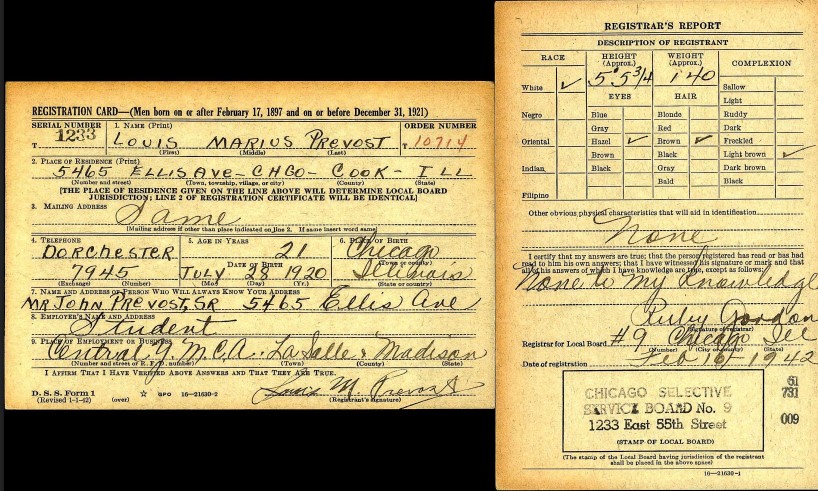 REGISTRATION CARD—(Men born on or after February 17, 1897 and on or before December 31, 1921)
SERIAL NUMBER 1. NAME (Print) ORDER NUMBER
T 1233 LOUIS MARIUS PREVOST T 10714
(First) (Middle) (Last)
2. PLACE OF RESIDENCE (Print)
5465 ELLIS AVE - CHGO - COOK - ILL
(Number and street) (Town, township, village, or city) (County) (State)
[THE PLACE OF RESIDENCE GIVEN ON THE LINE ABOVE WILL DETERMINE LOCAL BOARD
JURISDICTION; LINE 2 OF REGISTRATION CERTIFICATE WILL BE IDENTICAL]
3. MAILING ADDRESS
Same
[Mailing address if other than place indicated on line 2. If same insert word same]
4. TELEPHONE 5. AGE IN YEARS 6. PLACE OF BIRTH
DORCHESTER 21 Chicago
DATE OF BIRTH (Town or county)
7945 JULY 28 1920 Illinois
(Exchange) (Number) (Mo.) (Day) (Yr.) (State or country)
7. NAME AND ADDRESS OF PERSON WHO WILL ALWAYS KNOW YOUR ADDRESS
MR JOHN PREVOST, SR 5465 Ellis Ave
8. EMPLOYER'S NAME AND ADDRESS
Student
9. PLACE OF EMPLOYMENT OR BUSINESS
Central Y.M.C.A. La Salle & Madison
(Number and street or R. F. D. number) (Town) (County) (State)
I AFFIRM THAT I HAVE VERIFIED ABOVE ANSWERS AND THAT THEY ARE TRUE.
D. S. S. Form 1 Louis M. Prevost
(Revised 1-1-42) (over) GPO 16—21630-2 (Registrant's signature)
REGISTRAR'S REPORT
DESCRIPTION OF REGISTRANT
RACE HEIGHT (Approx.) WEIGHT (Approx.) COMPLEXION
White ✓ 5' 5 3/4 140 Sallow
EYES HAIR Light
Negro Blue Blonde Ruddy
Gray Red Dark
Oriental Hazel ✓ Brown ✓ Freckled
Brown Black Light brown ✓
Indian Gray Dark brown
Bald Black
Filipino
Other obvious physical characteristics that will aid in identification
None
I certify that my answers are true; that the person registered has read or has had
read to him his own answers; that I have witnessed his signature or mark and that
all of his answers of which I have knowledge are true, except as follows:
None to my knowledge
Ruby Gordon
(Signature of registrar)
Registrar for Local Board #9 Chicago Ill
(Number) (City or county) (State)
Date of registration Feb 16, 1942
CHICAGO SELECTIVE
SERVICE BOARD No. 9
1233 East 55th Street
51
731
009
(STAMP OF LOCAL BOARD)
(The stamp of the Local Board having jurisdiction of the registrant
shall be placed in the above space)
16—21630-1